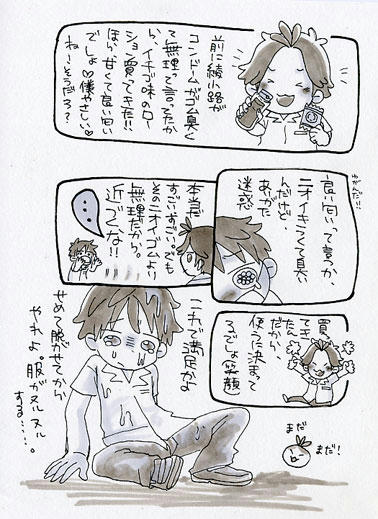 前に綾小路が
コンドームがゴム臭く
て無理って言ってたか
ら、イチゴ味のロー
ション買ってきた!!
ほら、甘くて良い匂い
でしょ♡僕やさしい♡
ねーそうだろ?
良い匂いって言うか、
ニオイキツくて臭い
んだけど・
あがた
迷惑
本当だ
すごいすごい。でも
そのニオイゴムより
無理だから。
近づくな!!
・・・
買っ
てき
たん
だから、
使うに決まって
るでしょ笑顔
コチで満足かよ
せめて感じさせてから
やれよ。服がヌルヌル
する・・・・・・。
まだ
まだ!